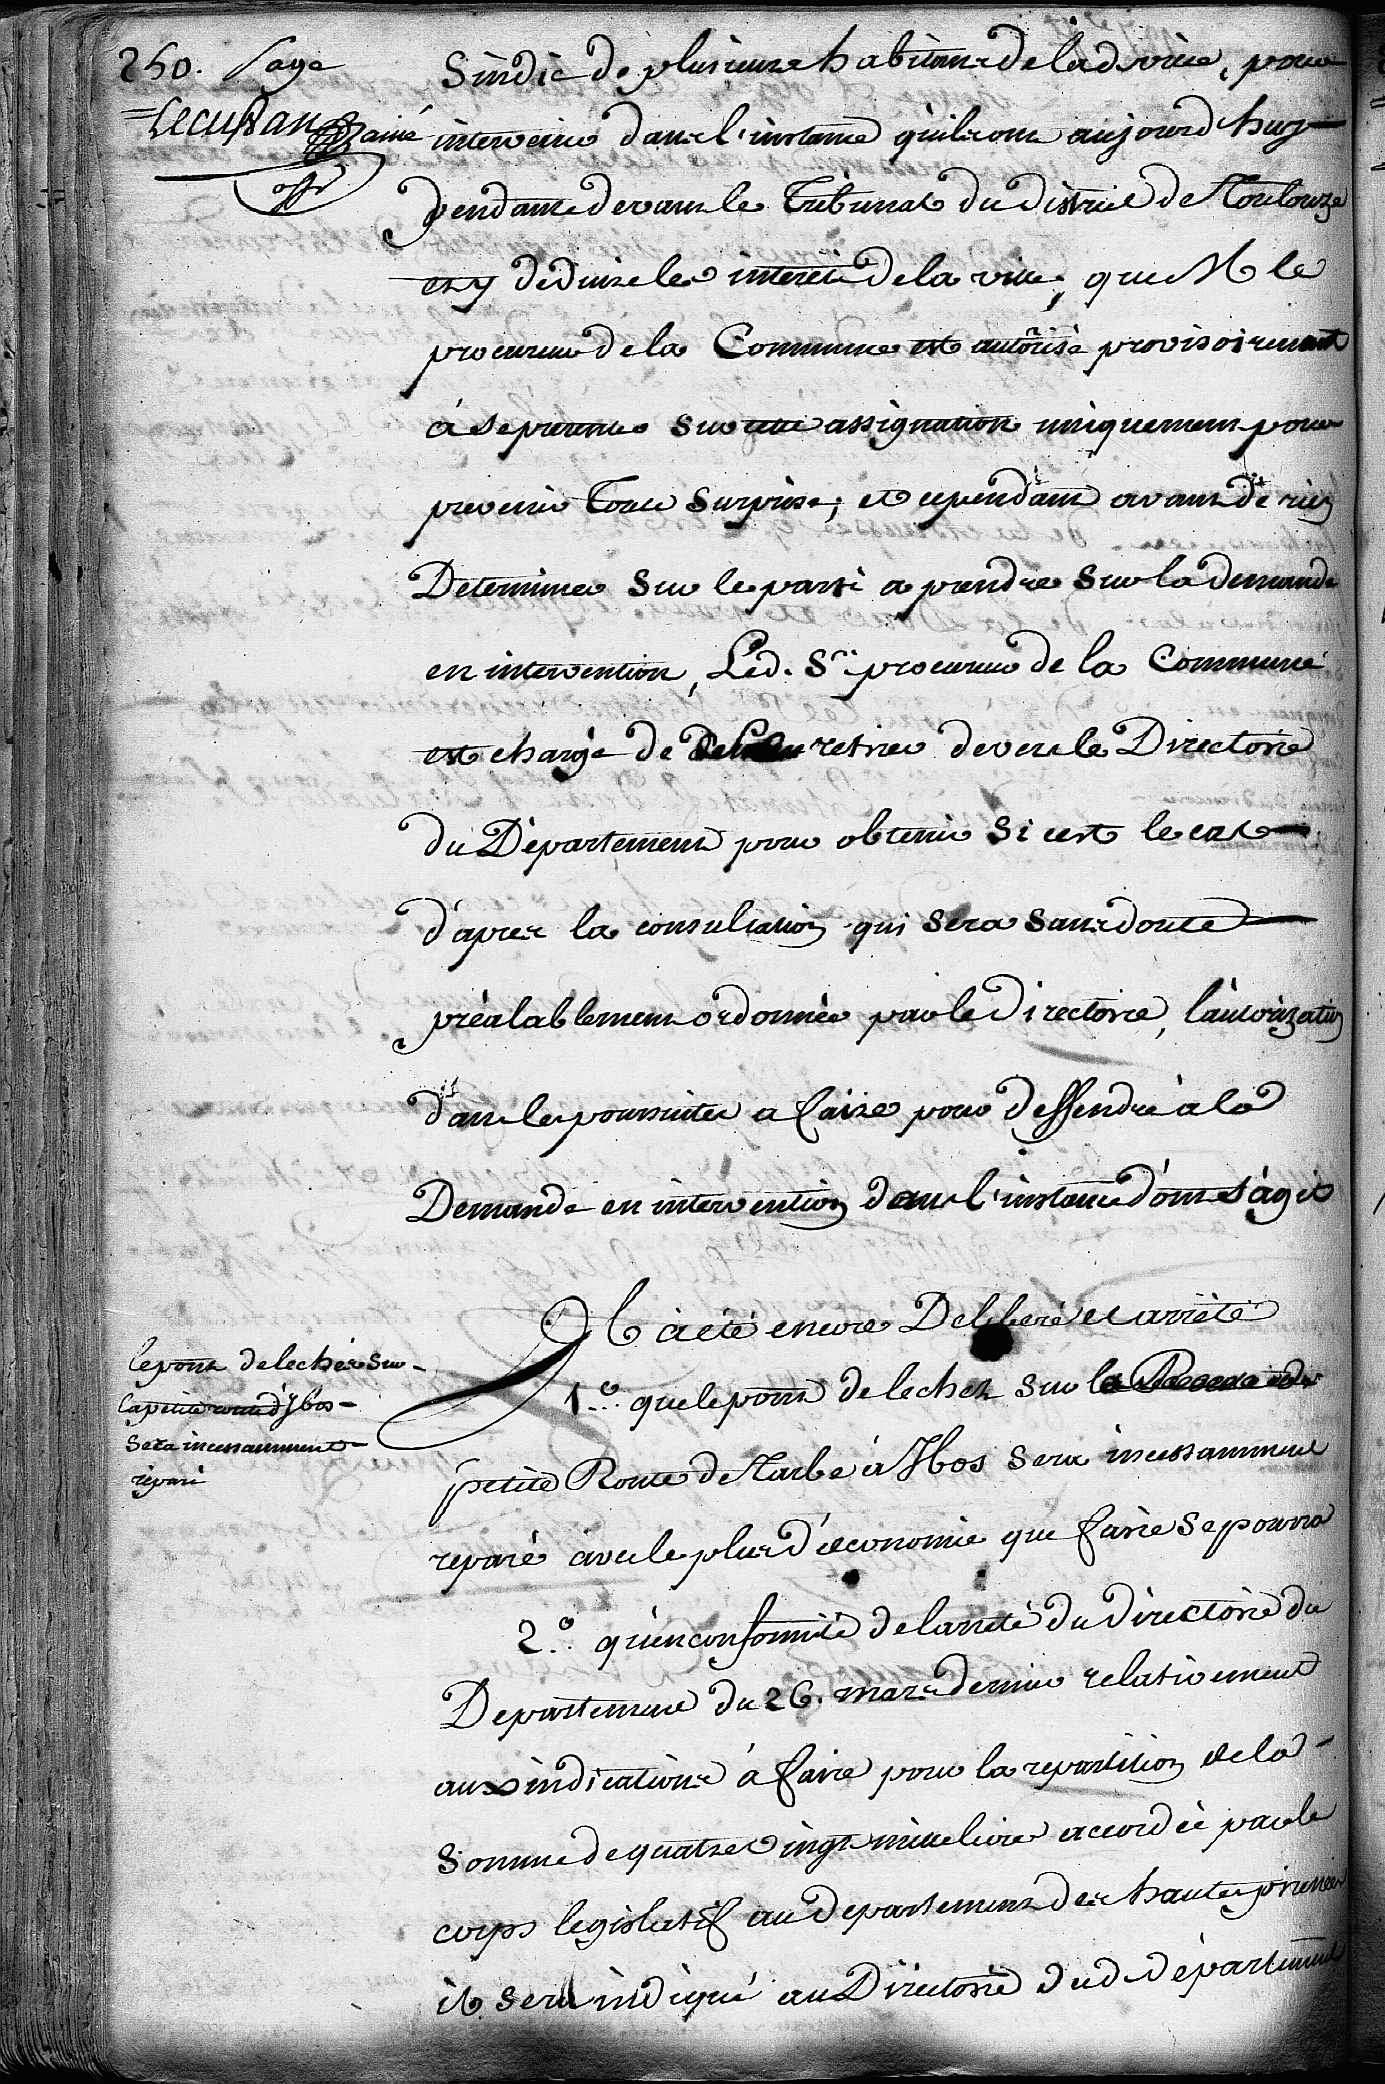 250. page
Lecussan ainé
offr
Sindic de plusieurs habitans de lad. ville, pour
intervenir dans l'instance qu'ils ont aujourd'huy
pendante devant le Tribunal du District de Toulouze
et y deduire les interèts de la ville, que M le
procureur de la Commune est autorisé provisoirement
à se presenter sur cette assignation uniquement pour
prevenir toute surprise; et cependant avant de rien
Determiner sur le parti a prendre sur la demande
en intervention, Led. Sr. procureur de la Commune
est chargé de retirer devers le Directoire
du Département pour obtenir si cest le cas
d'aprés la consultation qui sera sans doute
préalablement ordonnée par le Directoire, l'autorization
dans les poursuites a faire pour deffendre à la
Demande en intervention dans l'instance dont s'agit
Il à été encore Deliberé et arrêté
1.º que le pont de lechez sur la
petite Route de Tarbe à Ibos sera incessamment
reparé avec le plus d'économie que faire se pourra
le pont de lechés sur
la petite route d'Ibos
sera incessamment
réparé
2.º qu'en conformité de l'arreté du Directoire du
Departement du 26. mars dernier relativement
aux indications à faire pour la repartition de la
somme de quatre vingt mille livres accordée par le
corps legislatif au departement des hautes pirenées
il sera indiqué au Directoire dud. département